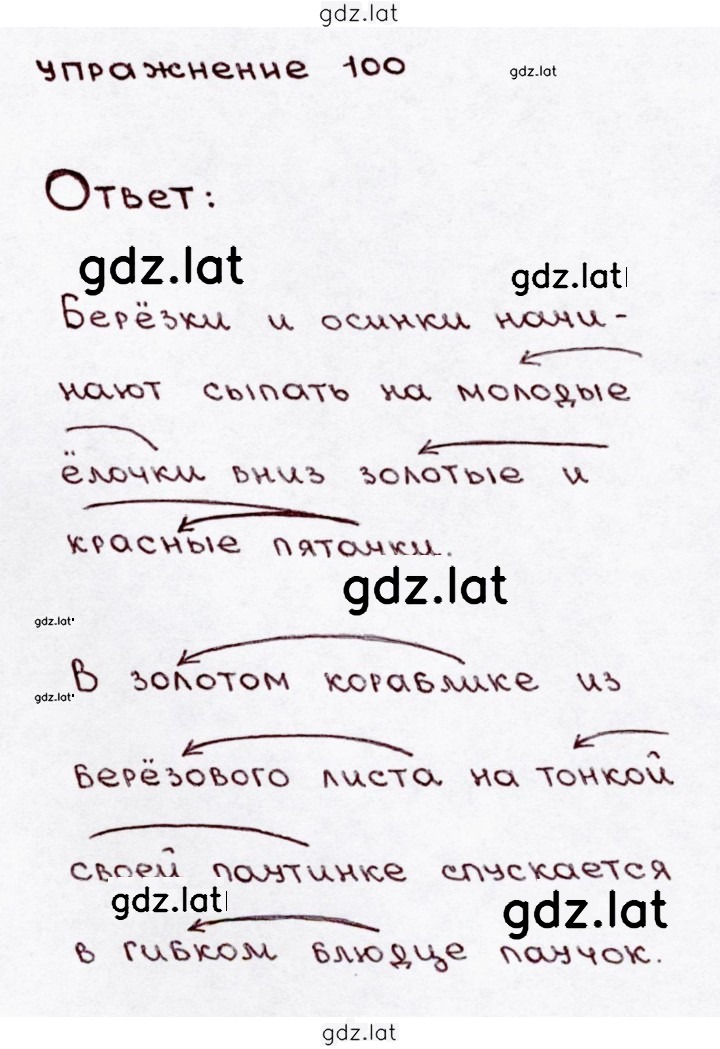 gdz.lat
упражнение 100
gdz.lat
Ответ:
gdz.lat
gdz.lat
Берёзки и осинки начи-
нают сыпать на молодые
ёлочки вниз золотые и
красные пятачки.
gdz.lat
gdz.lat
В золотом кораблике из
gdz.lat
берёзового листа на тонкой
своей паутинке спускается
gdz.lat
gdz.lat
в гибком блюдце паучок.
gdz.lat